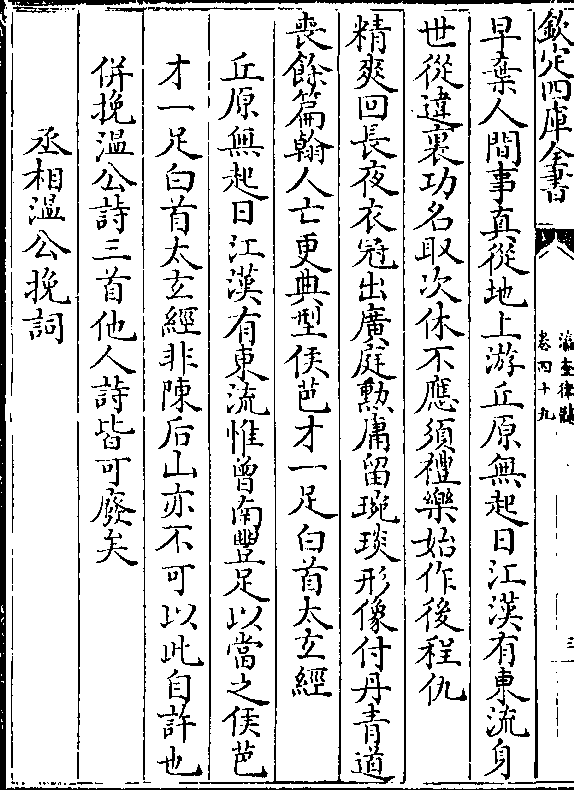 欽定四庫全書
瀛奎律髓
卷四十九
三
早棄人間事真從地上游丘原無起日江漢有東流身
世從違裏功名取次休不應須禮樂始作後程仇
精爽回長夜衣冠出廣庭勲庸留琬琰形像付丹青道
喪餘篇翰人亡更典型侯芭才一足白首太玄經
丘原無起日江漢有東流惟曾南豐足以當之侯芭
才一足白首太玄經非陳后山亦不可以此自許也
併挽溫公詩三首他人詩皆可廢矣
丞相溫公挽詞